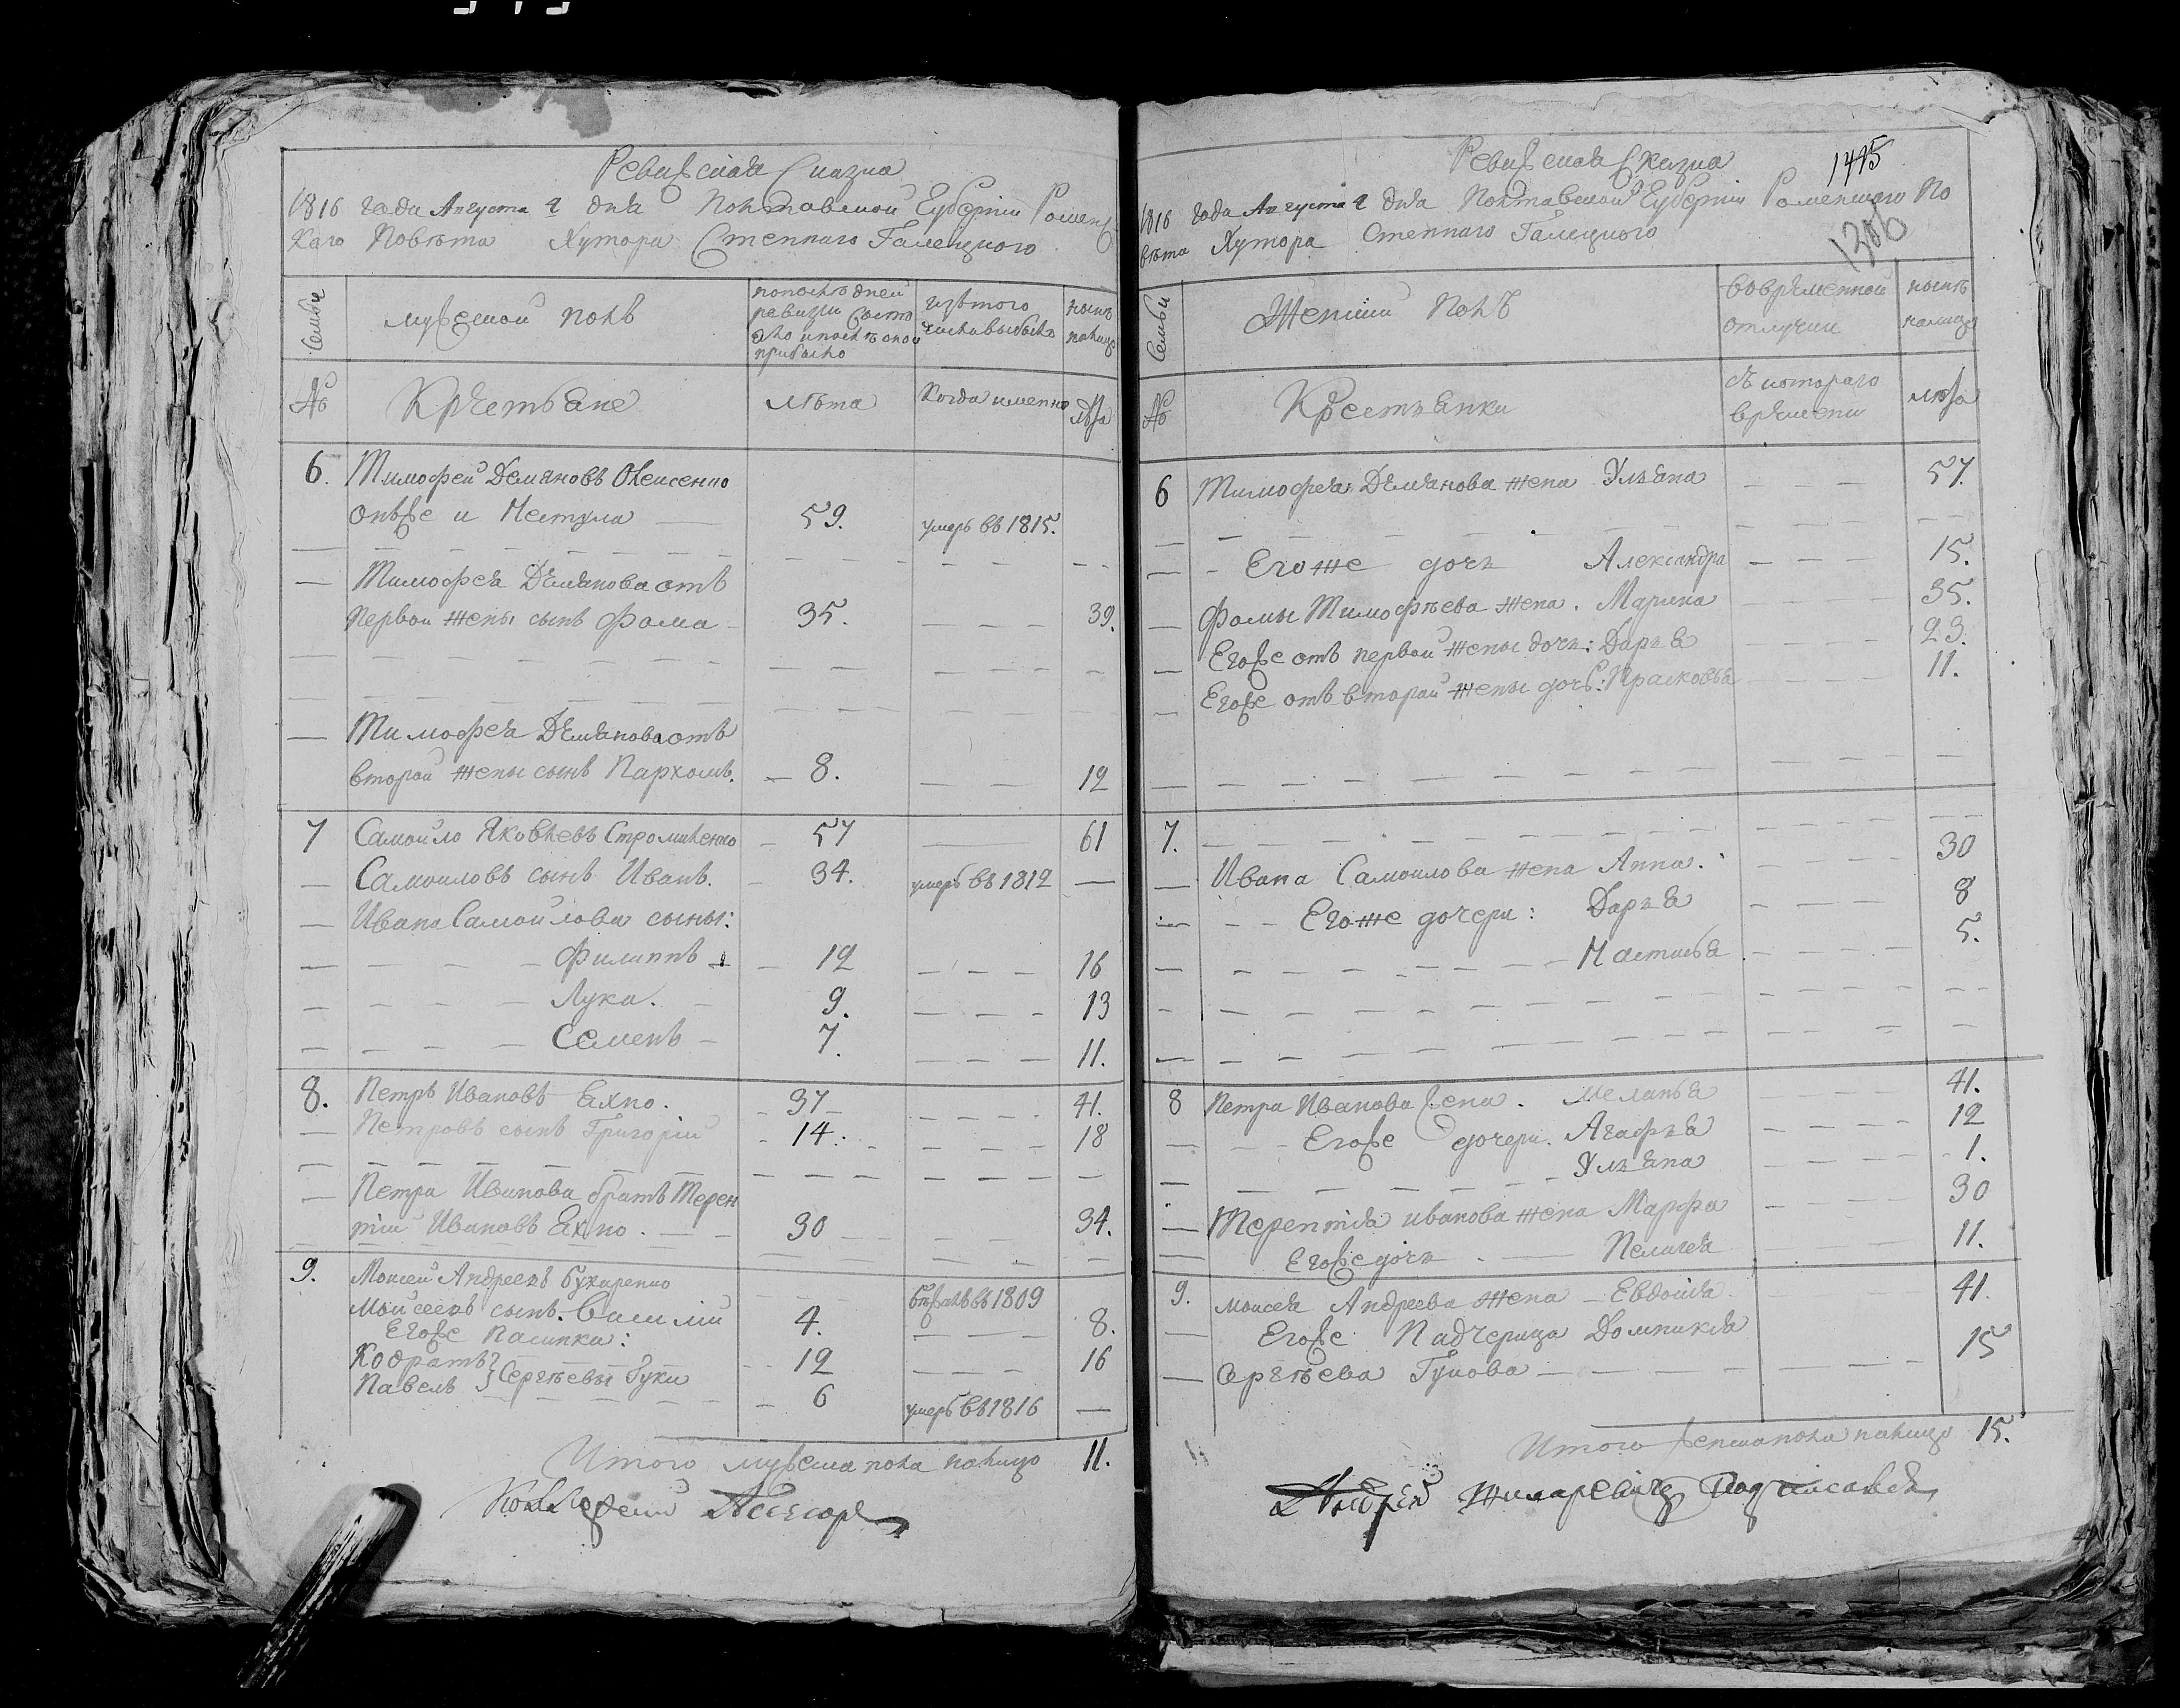 Ревизская Сказка
1816 года Августа 4 дня Полтавской Губернии Роменс
каго Повѣта Хутора Степнаго Галецкого
Семьи
мужеской полъ
попослѣдней
ревизіи состо
яло и послѣ оной
прибыло
изътого
числа выбыло
нынѣ
налицо
№
Крестьяне
Лѣта
Когда именно
лѣта
6. Тимофей Демяновъ Олексенко
онъже и Нестула 59. умеръ въ 1815.
Тимофея Демянова отъ
первой жены сынъ Фома 35. 39.
Тимофея Демянова отъ
второй жены сынъ Пархомъ. 8. 12
7 Самойло Яковлевъ Стромиленко 57 61
Самоиловъ сынъ Иванъ. 34. умеръ въ 1812
Ивана Самойлова сыны:
Филиппъ 12 16
Лука. 9. 13
Семенъ 7. 11.
8. Петръ Ивановъ Яхно. 37 41.
Петровъ сынъ Григорій 14. 18
Петра Иванова братъ Терен
тій Ивановъ Яхно. 30 34.
9. Моисей Андреевъ
Моисеевъ сынъ Василій 4. въ 1809 8.
Егоже пасинки:
Кодратъ 12 16
Павелъ } Сергѣевы Гуки 6 умеръ въ 1816
Итого мужеска пола налицо 11.
Ассесоръ
Ревизская Сказка
1475
1816 года Августа 4 дня Полтавской Губерніи Роменскаго По
вѣта Хутора Степнаго Галецкого
1306
Семьи
Женскій Полъ
вовременной
отлучки
нынѣ
налицо
№
Крестьянки
съ котораго
времени
лѣта
6 Тимофея Демянова жена Ульяна 57.
Егоже дочь Александра 15.
Фомы Тимофѣева жена. Марина 35.
Егоже отъ первой жены дочь: Дарья 23.
Егоже отъ второй жены дочь: Прасковья 11.
7.
Ивана Самоилова жена Анна. 30
Егоже дочери: Дарья 8
Настасья 5.
8 Петра Иванова жена. Меланья 41.
Егоже дочери. Агафья 12
Ульяна 1.
Терентія иванова жена Марфа 30
Егоже дочь Пелагея 11.
9. Моисея Андреева жена Евдокія 41.
Егоже Падчерица Домникія 15
Сергѣева Гукова
Итого женска пола налицо 15.
Андрей подписался